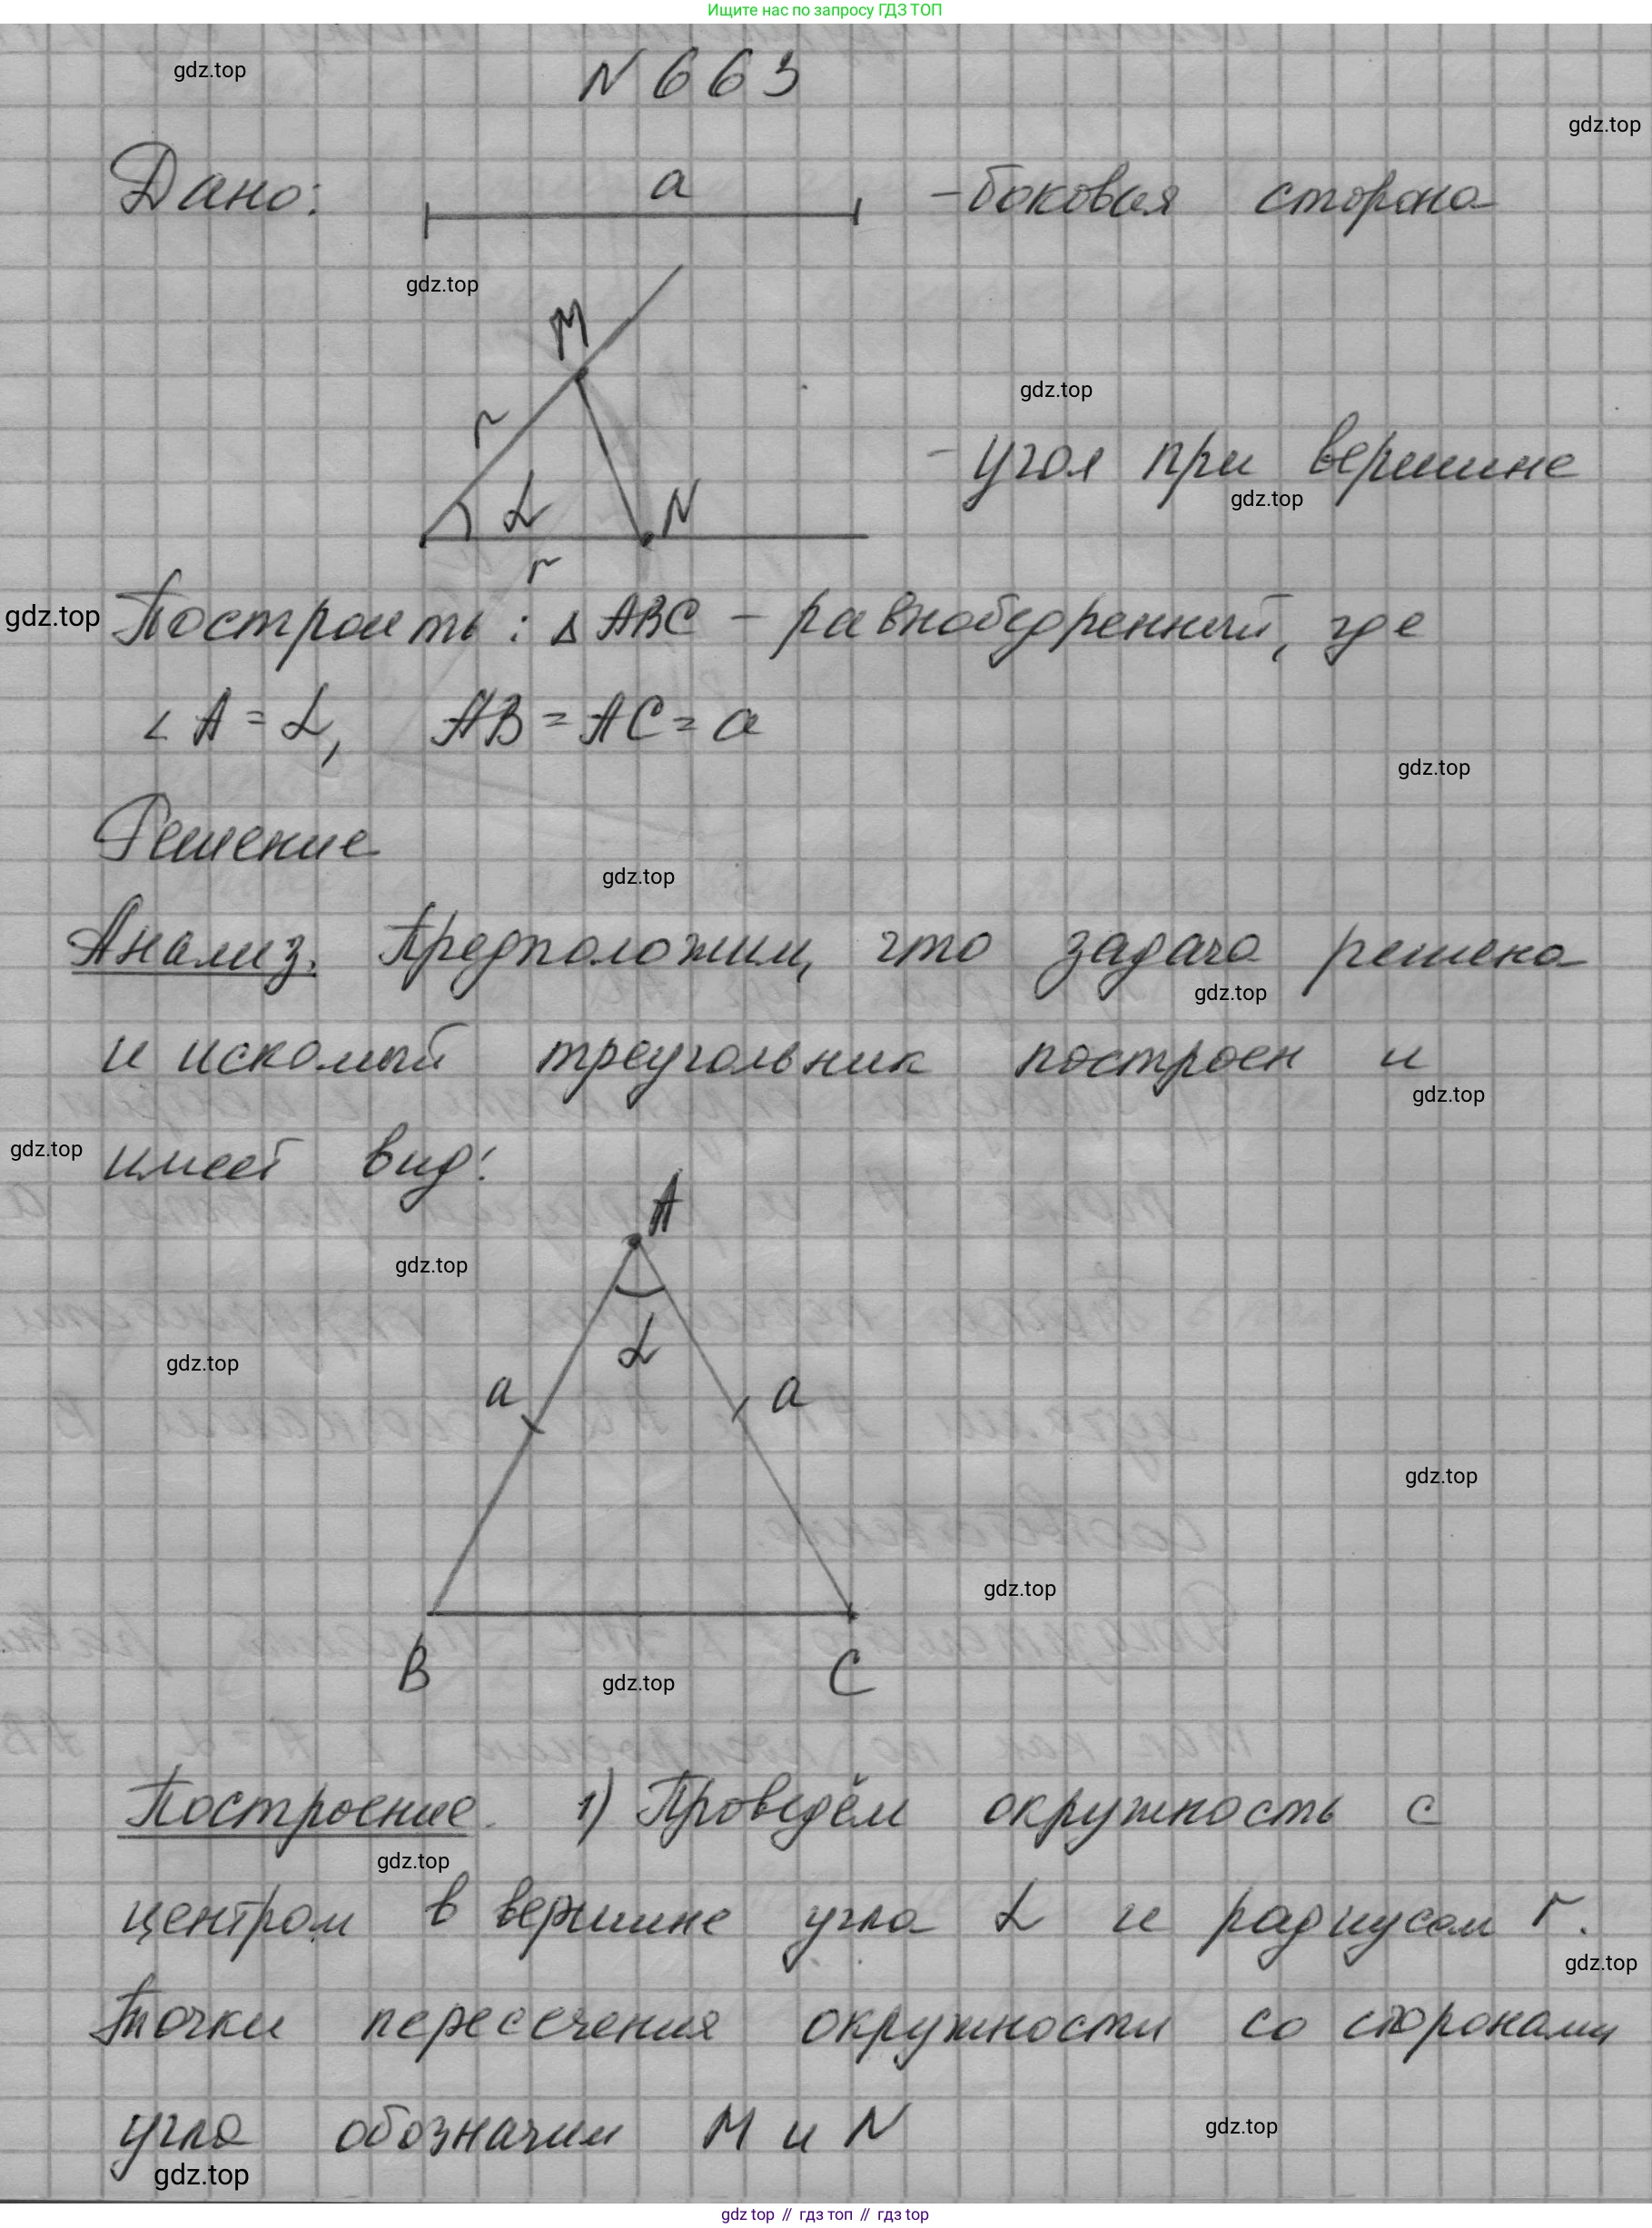 Ищите нас по запросу ГДЗ ТОП
N 663
gdz.top
gdz.top
Дано: a - боковая сторона
gdz.top
M
gdz.top
r
- угол при вершине
gdz.top
α N
r
gdz.top Построить: Δ ABC - равнобедренный, где
∠ A = α, AB = AC = a
gdz.top
Решение
gdz.top
Анализ. Предположим, что задача решена
gdz.top
и искомый треугольник построен и
gdz.top
gdz.top имеет вид:
A
gdz.top
α
gdz.top
a a
gdz.top
gdz.top
B C
gdz.top
Построение. 1) Проведём окружность с
gdz.top
центром в вершине угла α и радиусом r.
gdz.top
Точки пересечения окружности со сторонами
угла обозначим M и N
gdz.top
gdz.top
gdz top // гдз топ // гдз top